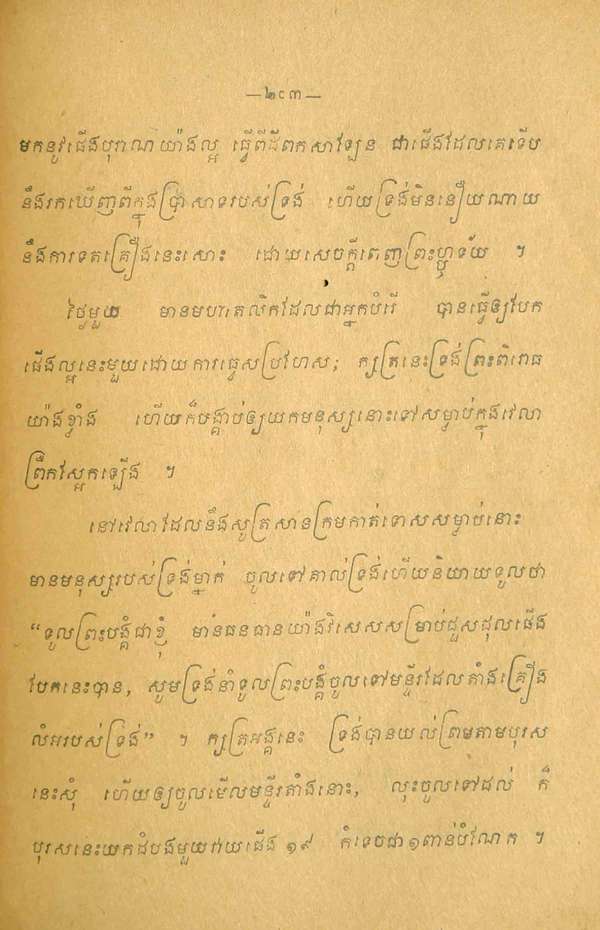 —២៨៣—
មកនូវជើងបុរាណយ៉ាងល្អ ធ្វើពីដីពកសាឡែន ជាជើងដែលគេទើប
នឹងរកឃើញពីក្នុងប្រាសាទរបស់ទ្រង់ ហើយទ្រង់មិននឿយណាយ
នឹងការទតគ្រឿងនេះសោះ ដោយសេចក្ដីពេញព្រះហ្ឫទ័យ ។
ថ្ងៃមួយ មានមហាតេលិកដែលជាអ្នកបំរើ បានធ្វើឲ្យបែក
ជើងល្អនេះមួយដោយការធ្វេសប្រហែស; ក្សត្រនេះទ្រង់ព្រះពិរោធ
យ៉ាងខ្លាំង ហើយក៏បង្គាប់ឲ្យយកមនុស្សនោះទៅសម្លាប់ក្នុងវេលា
ព្រឹកស្អែកឡើង ។
នៅវេលាដែលនឹងសូត្រសានក្រមកាត់ទោសសម្លាប់នោះ
មានមនុស្សរបស់ទ្រង់ម្នាក់ ចូលទៅគាល់ទ្រង់ហើយនិយាយទូលថា
“ទូលព្រះបង្គំជាខ្ញុំ មានធនធានយ៉ាងវិសេសសម្រាប់ជួសជុលជើង
បែកនេះបាន, សូមទ្រង់នាំទូលព្រះបង្គំចូលទៅមន្ទីរដែលតាំងគ្រឿង
លំអរបស់ទ្រង់” ។ ក្សត្រអង្គនេះ ទ្រង់បានយល់ព្រមតាមបុរស
នេះសុំ ហើយឲ្យចូលមើលមន្ទីរតាំងនោះ, លុះចូលទៅដល់ ក៏
បុរសនេះយកដំបងមួយវាយជើង ១៩ កំទេចជា១ពាន់បំណែក ។